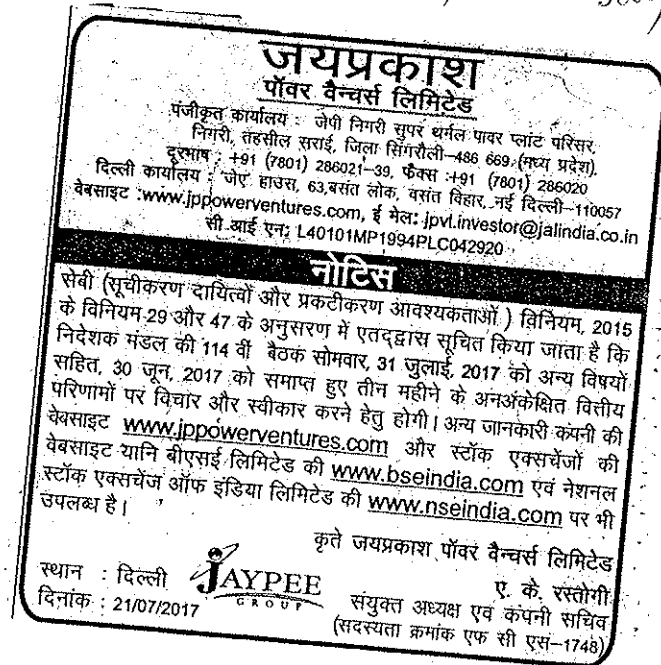 जयप्रकाश
पॉवर वैन्चर्स लिमिटेड
पंजीकृत कार्यालय : जेपी निगरी सुपर थर्मल पावर प्लांट परिसर,
निगरी, तहसील सराई, जिला सिंगरौली–486 669 (मध्य प्रदेश).
दूरभाष : +91 (7801) 286021–39, फैक्स :+91 (7801) 286020
दिल्ली कार्यालय : 'जेए' हाउस, 63,बसंत लोक, वसंत विहार, नई दिल्ली–110057
वेबसाइट :www.jppowerventures.com, ई मेल: jpvl.investor@jalindia.co.in
सी आई एन: L40101MP1994PLC042920
नोटिस
सेबी (सूचीकरण दायित्वों और प्रकटीकरण आवश्यकताओं ) विनियम, 2015
के विनियम 29 और 47 के अनुसरण में एतद्द्वारा सूचित किया जाता है कि
निदेशक मंडल की 114 वीं बैठक सोमवार, 31 जुलाई, 2017 को अन्य विषयों
सहित, 30 जून, 2017 को समाप्त हुए तीन महीने के अनअंकेक्षित वित्तीय
परिणामों पर विचार और स्वीकार करने हेतु होगी। अन्य जानकारी कंपनी की
वेबसाइट www.jppowerventures.com और स्टॉक एक्सचेंजों की
वेबसाइट यानि बीएसई लिमिटेड की www.bseindia.com एवं नेशनल
स्टॉक एक्सचेंज ऑफ इंडिया लिमिटेड की www.nseindia.com पर भी
उपलब्ध है।
कृते जयप्रकाश पॉवर वैन्चर्स लिमिटेड
ए. के. रस्तोगी
स्थान : दिल्ली
JAYPEE
GROUP
संयुक्त अध्यक्ष एवं कंपनी सचिव
दिनांक : 21/07/2017
(सदस्यता क्रमांक एफ सी एस–1748)